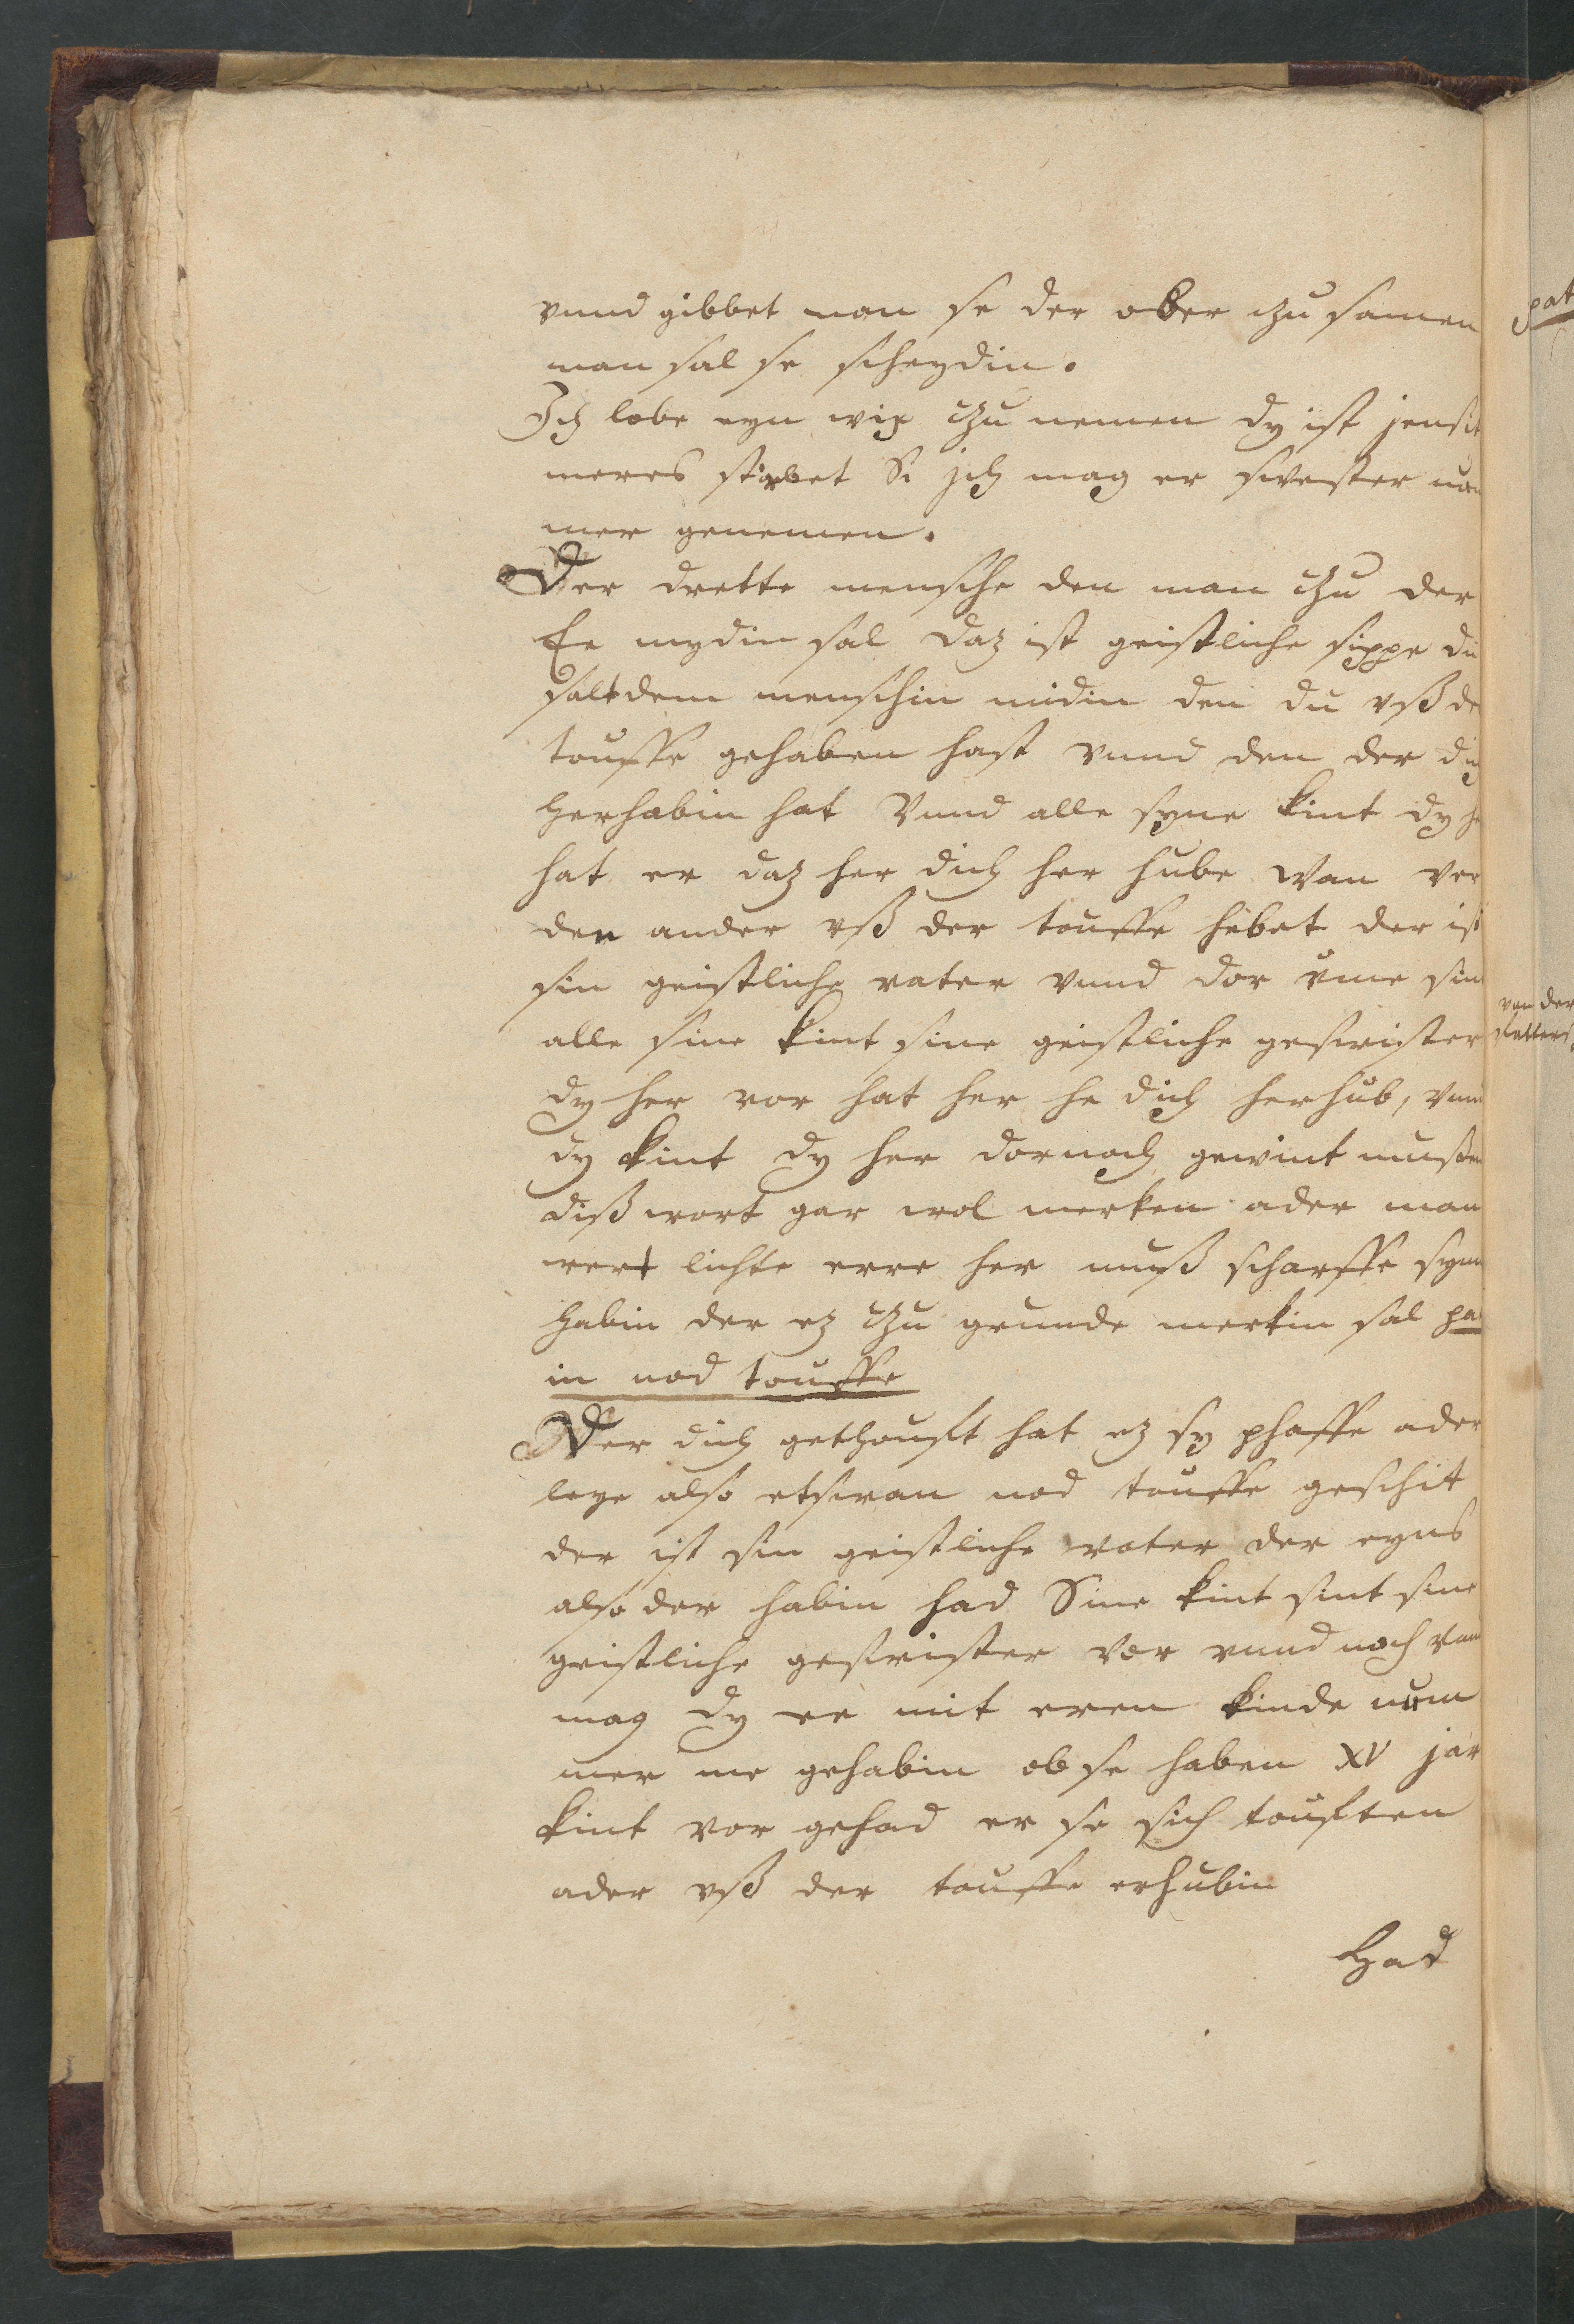 vnnd gibbet man se der ober czu samen
man sal se scheydin.
Ich lobe eyn wip czu nemen dy ist jensit
meres stirbet Si jch mag er swester num
mer genemen.
Der dritte mensche den man czu der
Ee mydin sal daz ist geistliche sippe du
salt dem menschin midin den du vß de
touffe gehaben hast vnnd den der dich
herhabin hat Vnnd alle syne kint dy he
hat er daz her dich her hube Wan wer
den ander vß der touffe hebet der ist
sin geistliche vater vnnd dor vme sin
alle sine kint sine geistliche geswister
dy her vor hat her he dich herhub, vnnd
dy kint dy her dornoch gewint musten
diß wort gar wol merken ader man
wert lichte erre her muß scharffe synn
habin der ez czu grunde merkin sal pa
in nod touffe
Wer dich gethouft hat ez sy phaffe ader
leye also etswan nod touffe geschit
der ist sin geistliche vater der eyns
also der habin had Sine kint sint sine
geistliche geswister vor vnnd noch vnnd
mag dy ee mit eren kinde num
mer me gehabin ob se haben XV jar
kint vor gehad er se sich touften
ader vß der touffe erhubin
Had
pat
von der